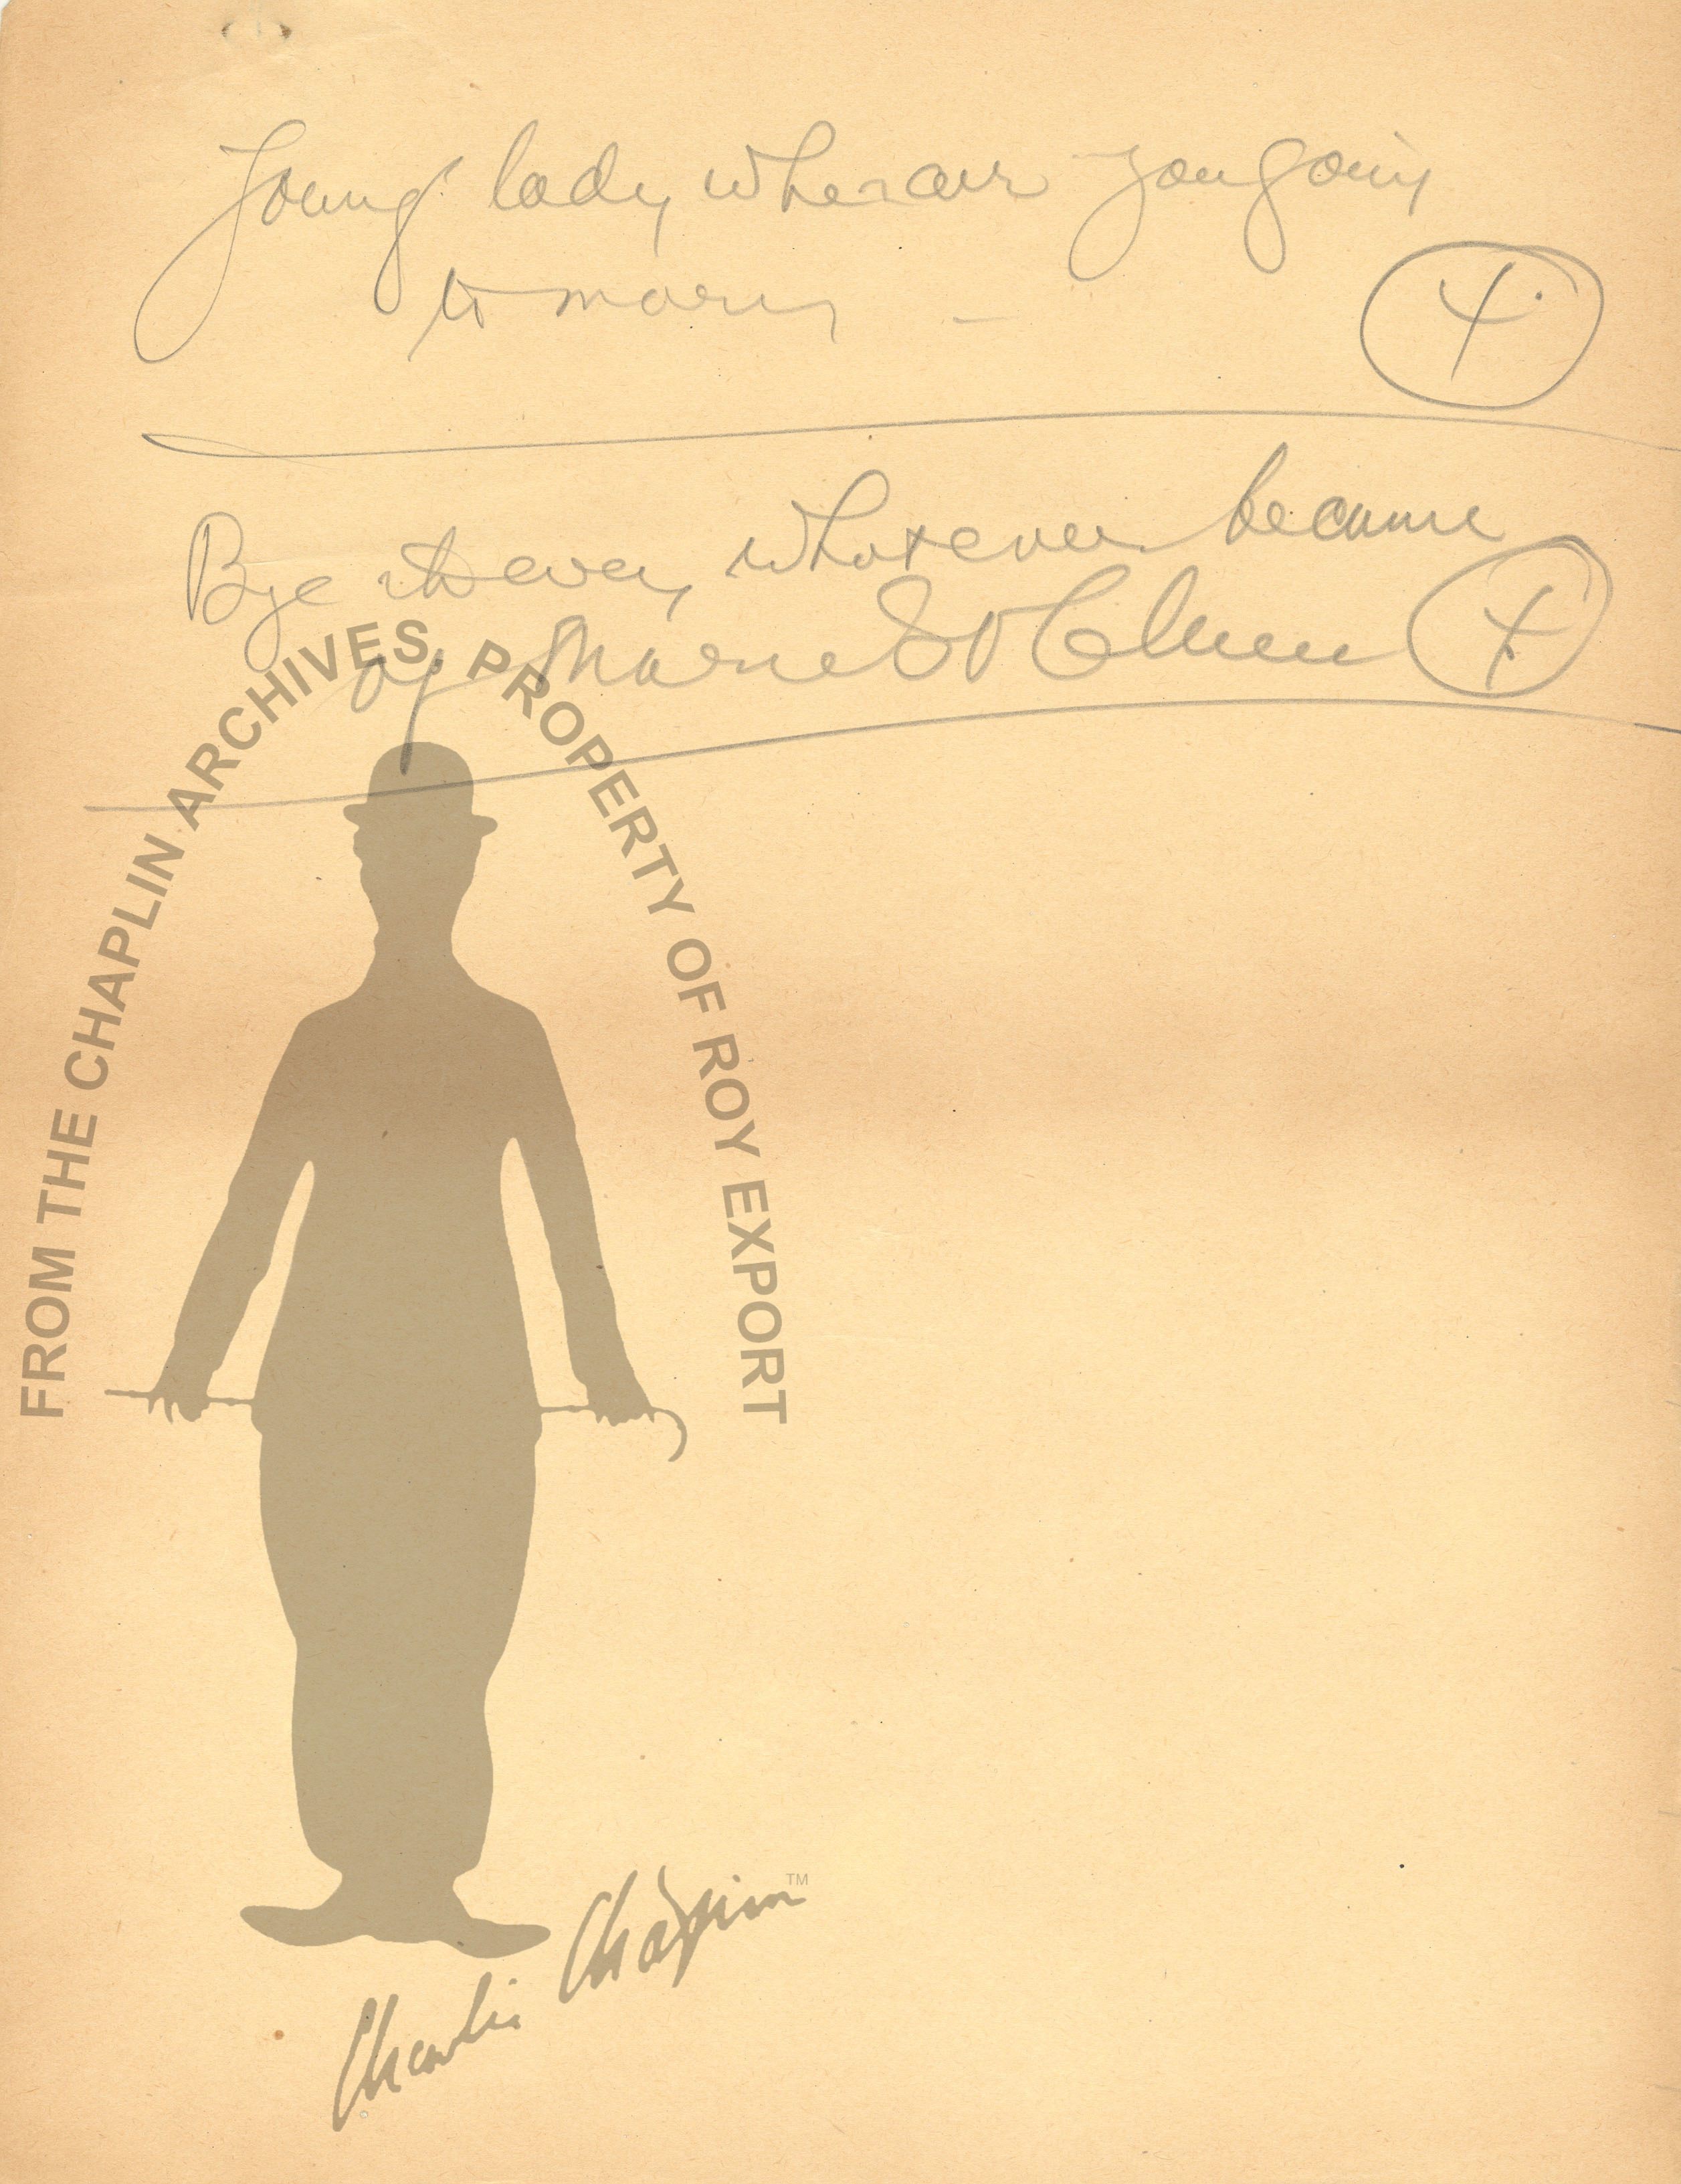 Young lady when are you going
to marry -
Bye the way, whatever became
of Marie St Clair
FROM THE CHAPLIN ARCHIVES. PROPERTY OF ROY EXPORT
Charlie Chaplin™